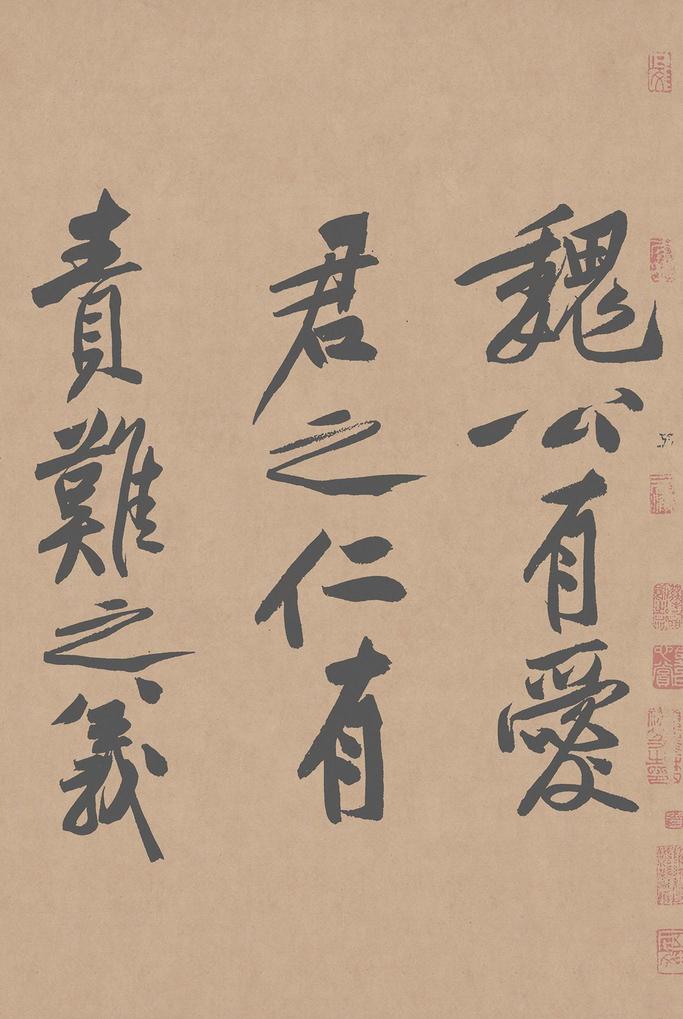 魏公有愛
君之仁有
責難之義